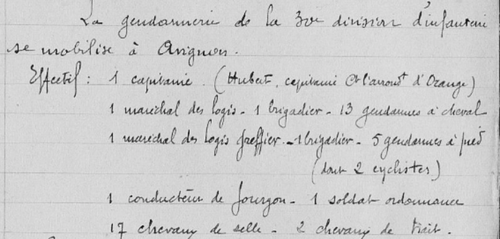 La gendarmerie de la 30e division d'infanterie
se mobilise à Avignon.
Effectif : 1 capitaine. (Hubert, capitaine Ct l'arrondt d'Orange)
1 maréchal des logis - 1 brigadier - 13 gendarmes à cheval
1 maréchal des logis greffier - 1 brigadier - 5 gendarmes à pied
(dont 2 cyclistes)
1 conducteur de fourgon - 1 soldat ordonnance
17 chevaux de selle - 2 chevaux de trait.